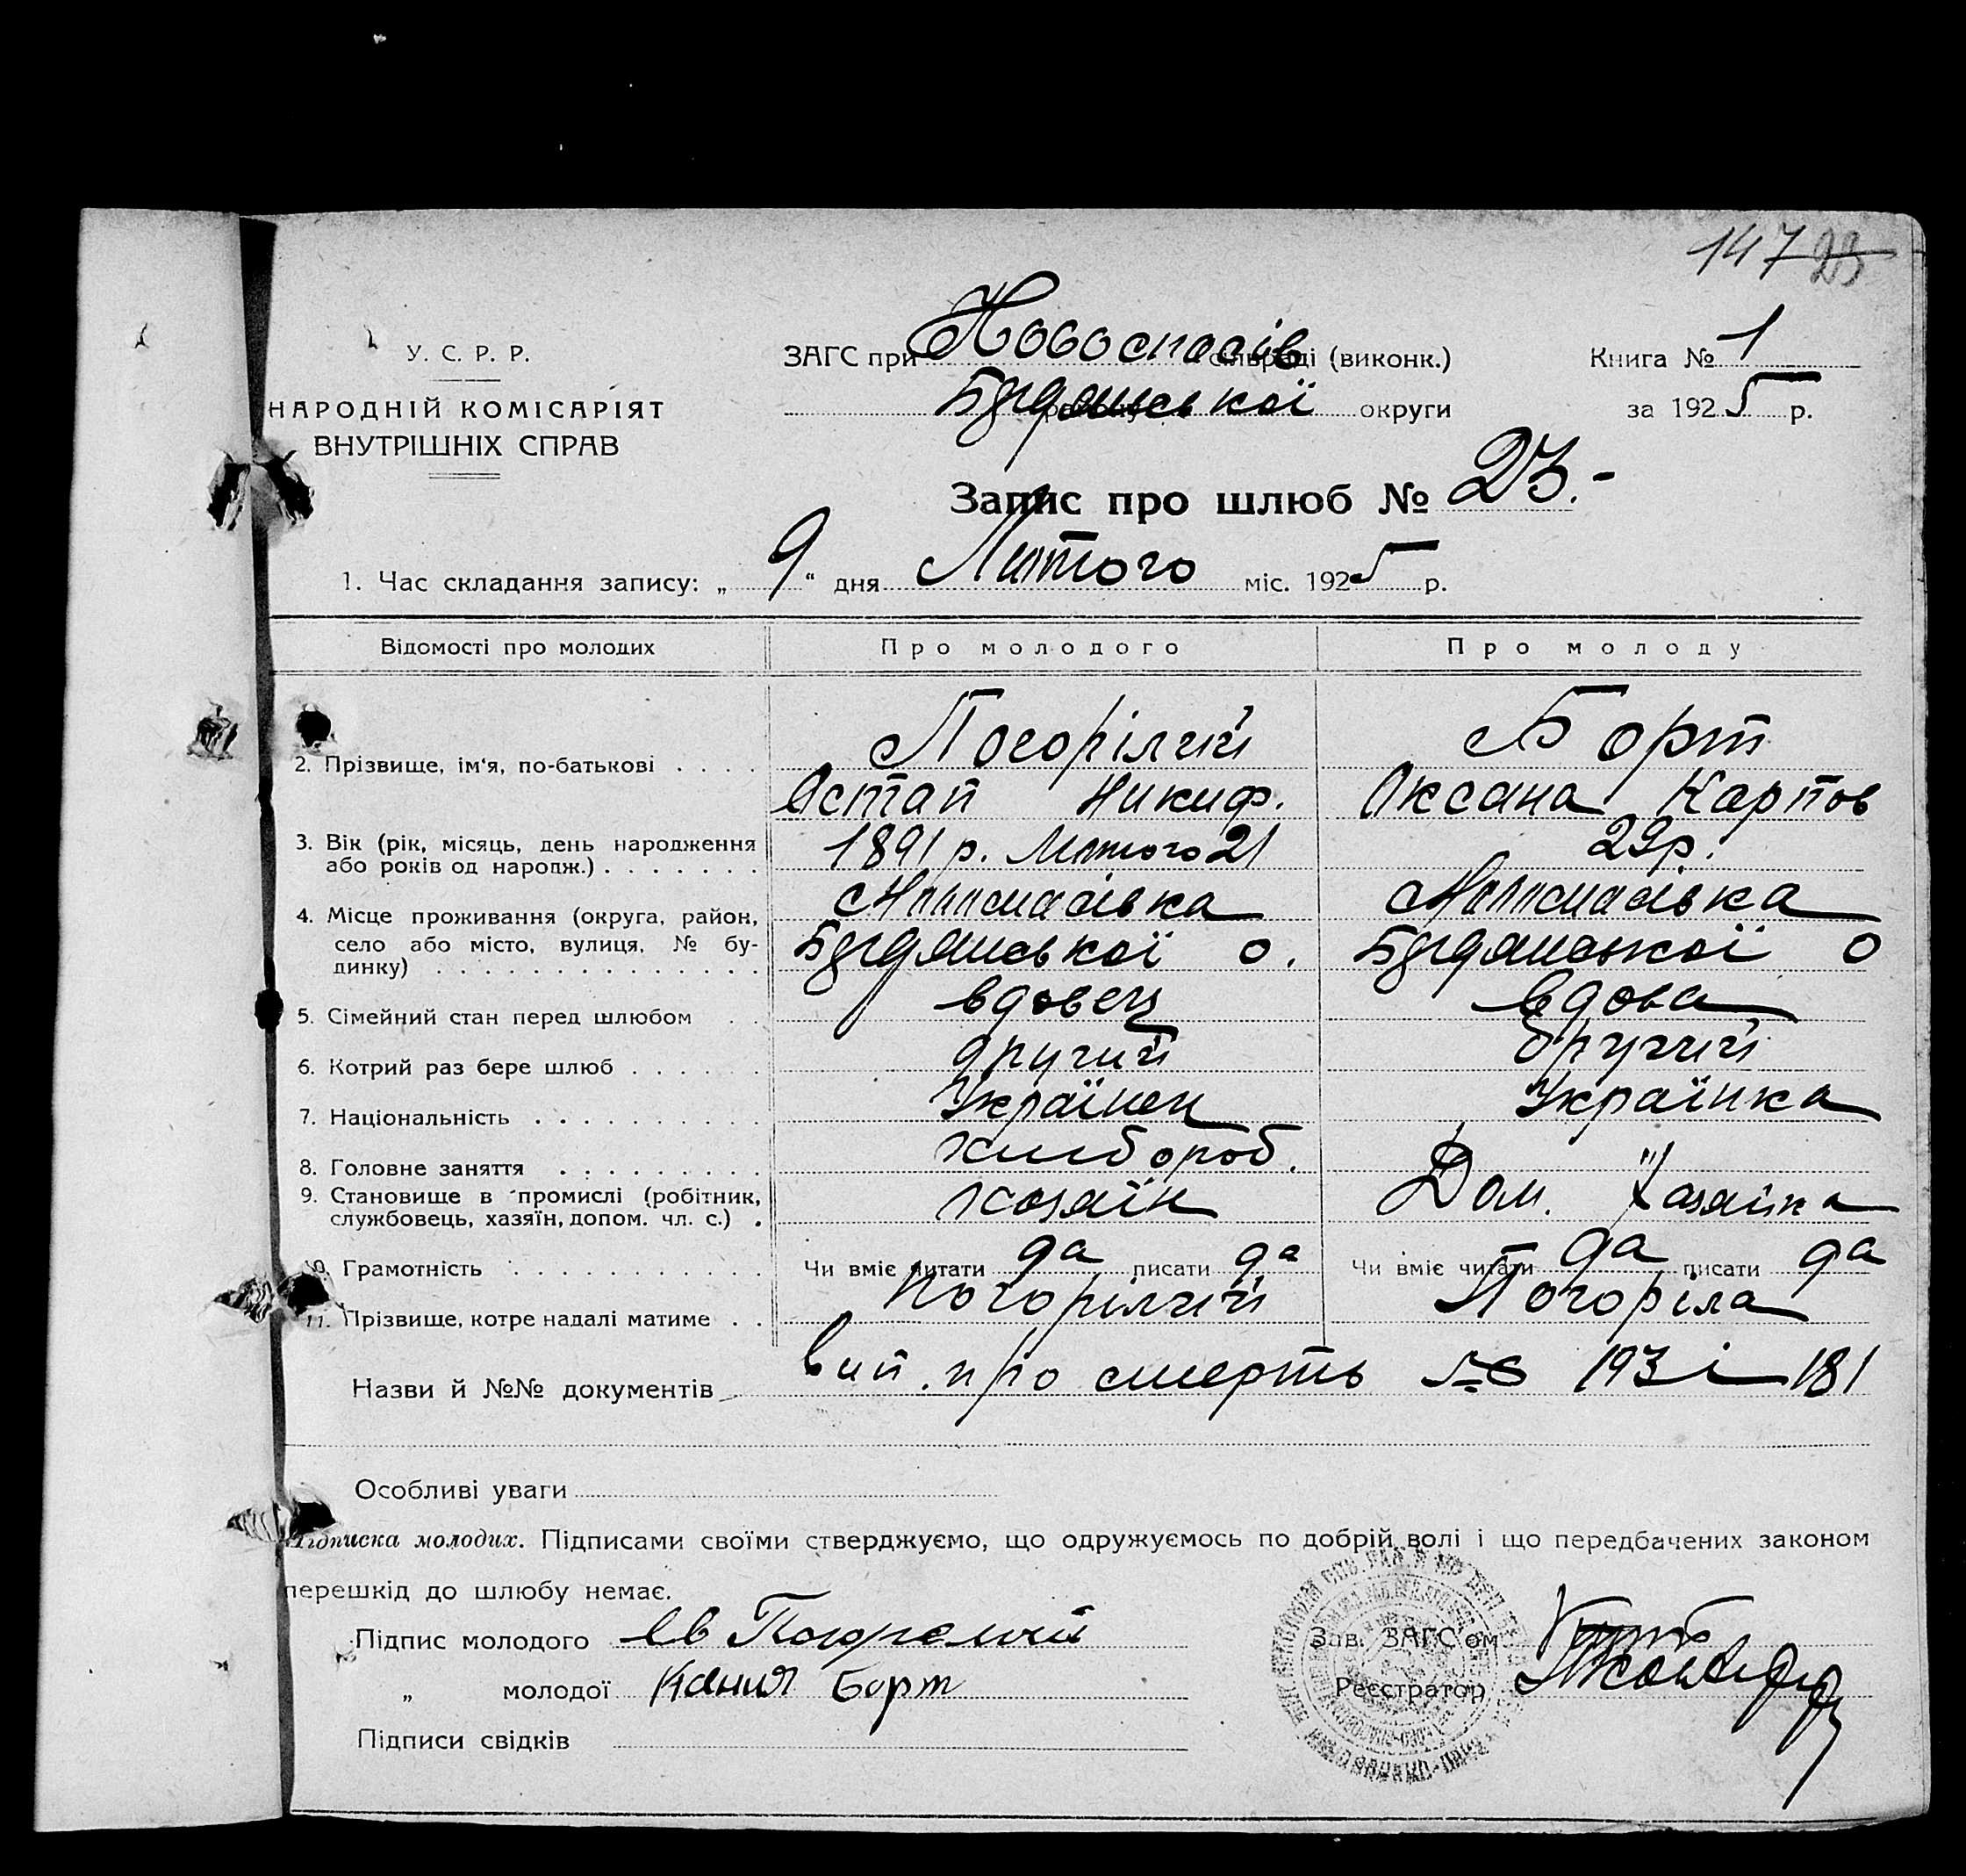 147 23
У. С. Р. Р.
НАРОДНІЙ КОМІСАРІЯТ
ВНУТРІШНІХ СПРАВ
ЗАГС при Новоспасів сільраді (виконк.)
Бердянської округи
Книга № 1
за 1925 р.
Запис про шлюб № 23.-
1. Час складання запису: „9“ дня Лютого міс. 1925 р.
Відомості про молодих Про молодого Про молоду
2. Прізвище, ім‘я, по-батькові Погорілий Борт
Остап Никиф. Оксана Карпов
3. Вік (рік, місяць, день народження
або років од народж.) 1891 р. Лютого 21 29р.
4. Місце проживання (округа, район,
село або місто, вулиця, № бу-
динку)
Новоспасівка Новоспасівка
Бердянської о. Бердянської о
5. Сімейний стан перед шлюбом вдовец вдова
6. Котрий раз бере шлюб другий другий
7. Національність Українец Українка
8. Головне заняття хлібороб.
9. Становище в промислі (робітник,
службовець, хазяїн, допом. чл. с.) хазяїн Дом. Хазяїка
10. Грамотність Чи вміє читати да писати да Чи вміє читати да писати да
11. Прізвище, котре надалі матиме Погорілий Погоріла
Назви й №№ документів Вип. про смерть № 193 і 181
Особливі уваги
Підписка молодих. Підписами своїми стверджуємо, що одружуємось по добрій волі і що передбачених законом
перешкід до шлюбу немає.
Підпис молодого Ев Погорелий
„ молодої Ксения Борт
Підписи свідків
Зав. ЗАГС‘ом
Реєстратор